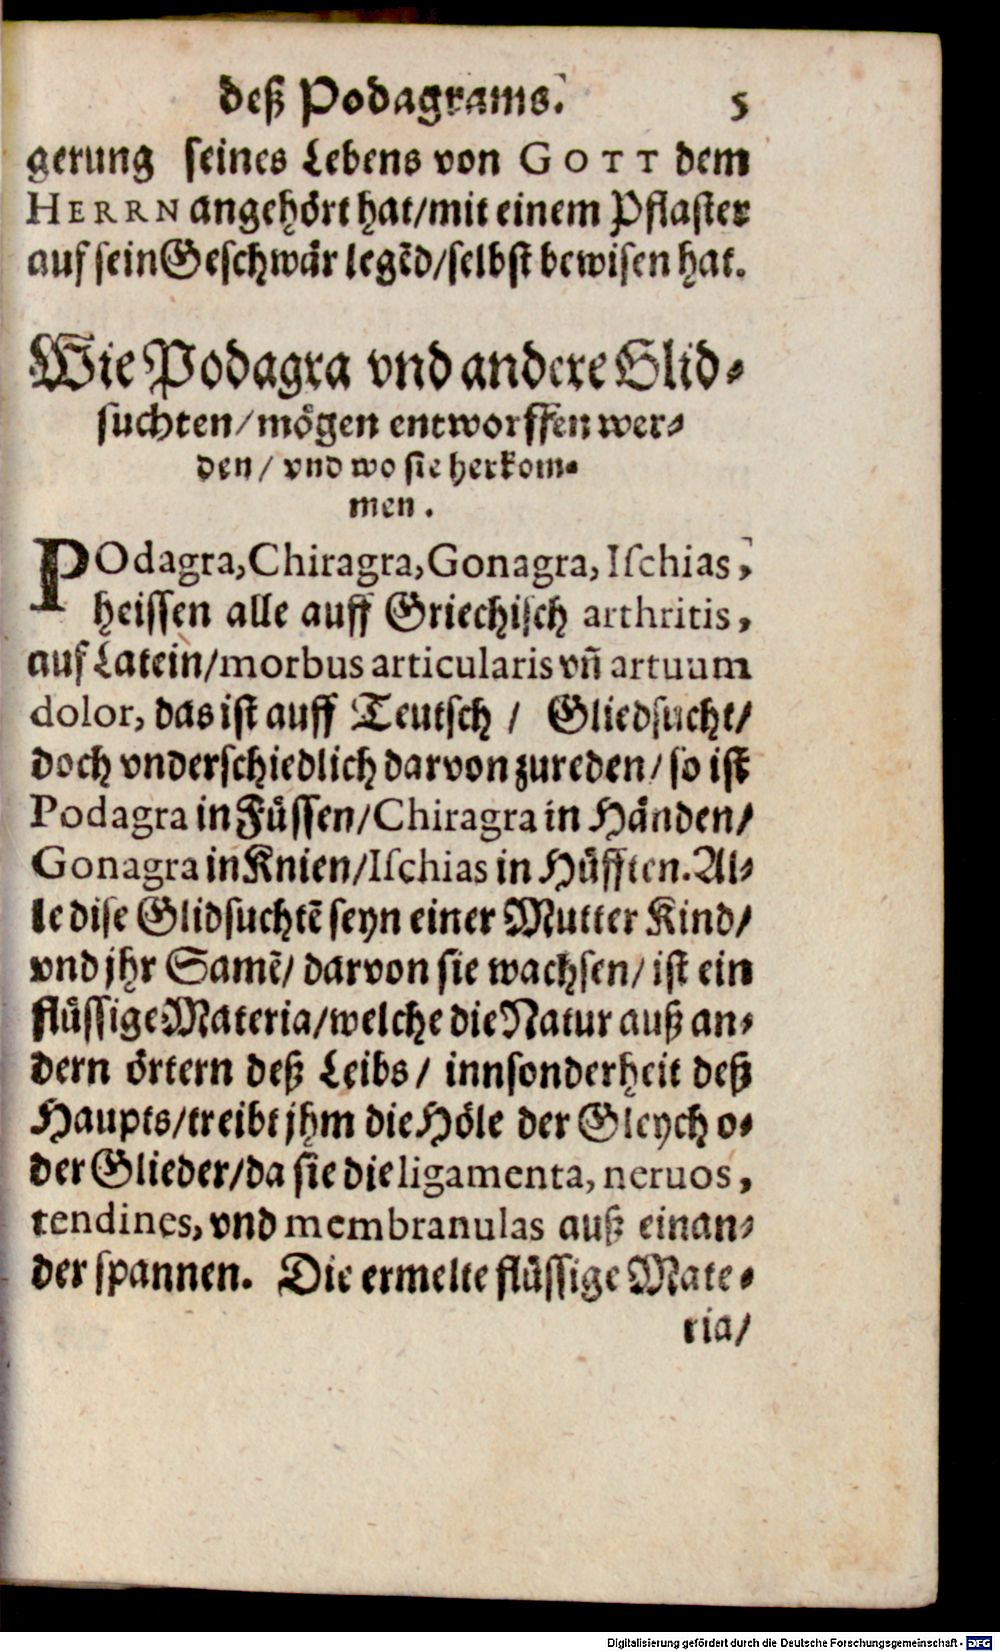 deß Podagrams. 5
gerung seines Lebens von GOTT dem
HERRN angehört hat/mit einem Pflaster
auf sein Geschwär legẽd/selbst bewisen hat.
Wie Podagra vnd andere Glid-
suchten/mögen entworffen wer-
den/ vnd wo sie herkom-
men.
POdagra, Chiragra, Gonagra, Ischias,
heissen alle auff Griechisch arthritis,
auf Latein/morbus articularis vñ artuum
dolor, das ist auff Teutsch / Gliedsucht/
doch vnderschiedlich darvon zureden/ so ist
Podagra in Füssen/Chiragra in Händen/
Gonagra in Knien/Ischias in Hüfften. Al-
le dise Glidsuchtẽ seyn einer Mutter Kind/
vnd jhr Samẽ/ darvon sie wachsen/ ist ein
flüssige Materia/welche die Natur auß an-
dern örtern deß Leibs/ innsonderheit deß
Haupts/treibt jhm die Höle der Gleych o-
der Glieder/da sie die ligamenta, neruos,
tendines, vnd membranulas auß einan-
der spannen. Die ermelte flüssige Mate-
ria/
Digitalisierung gefördert durch die Deutsche Forschungsgemeinschaft - DFG